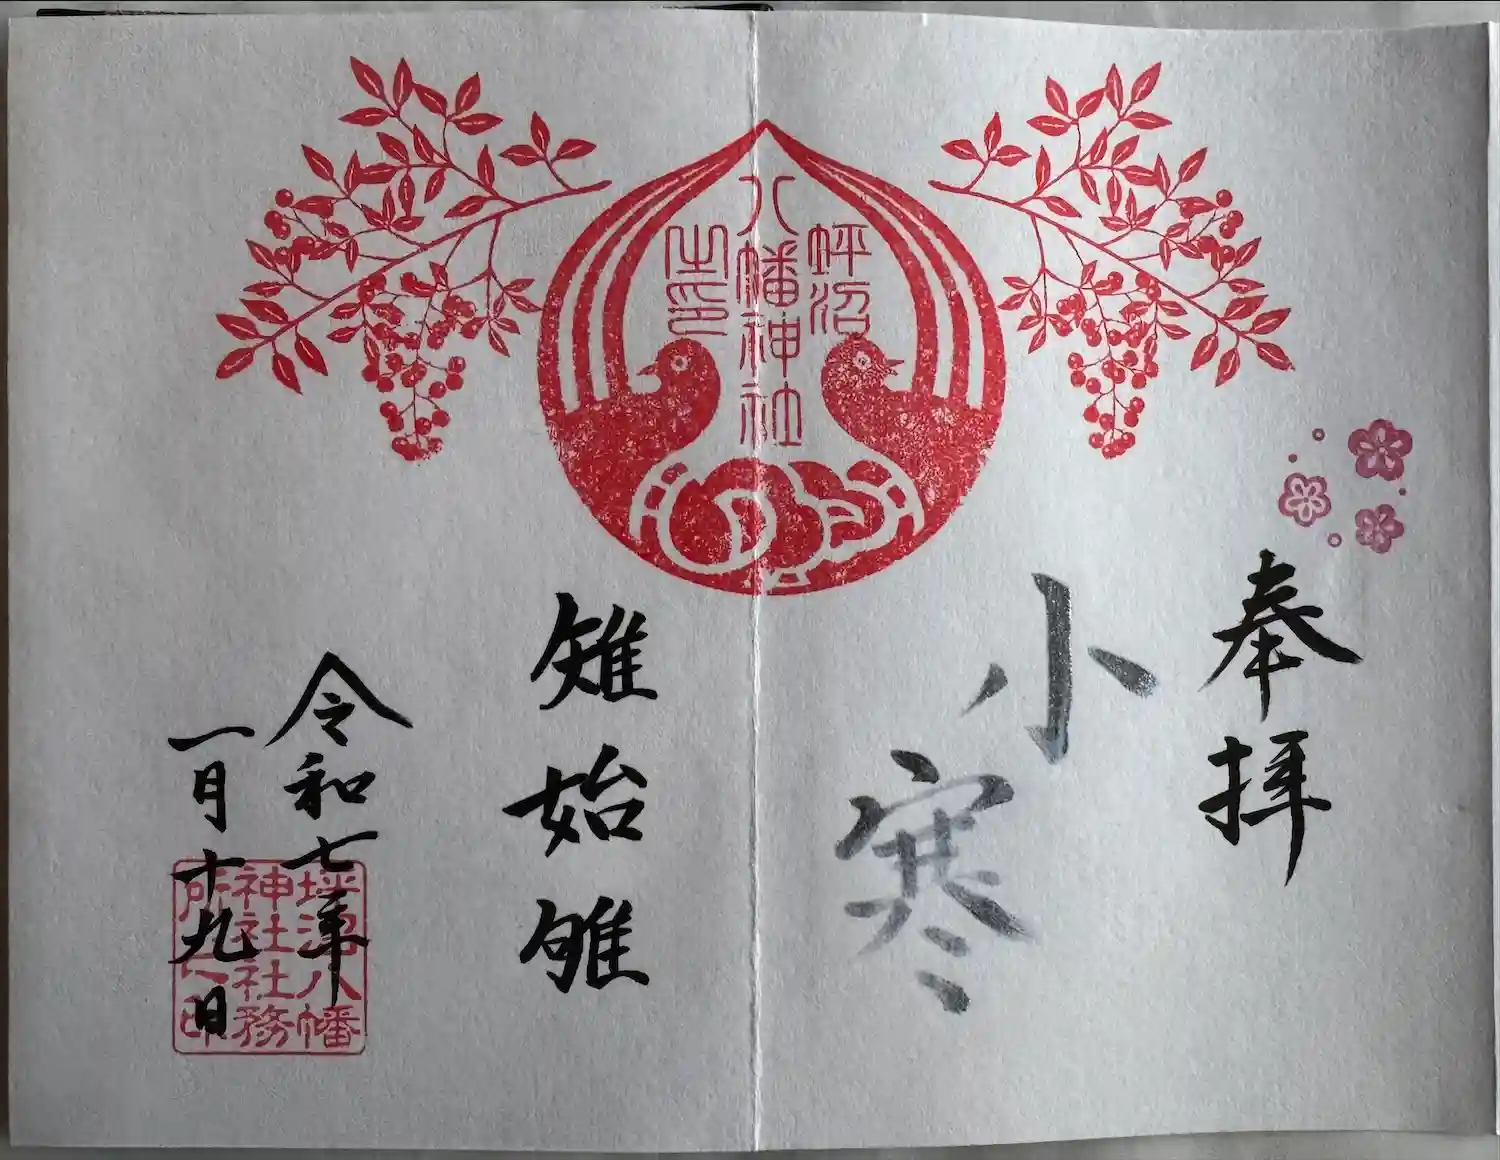 奉拝
小寒
坪沼
八幡神社
之印
雉始雊
令和七年
一月十九日
坪沼八幡
神社社務
所之印